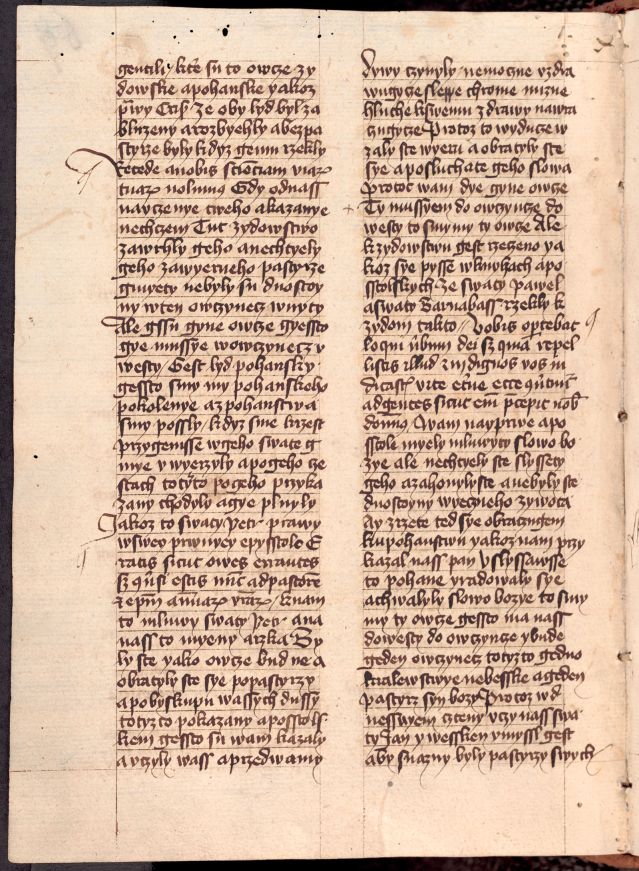 gentili kte su to owcze zy
dowske apohanske yakoz
prwy Crisp ze oby lyd byl za
bluzeny arozbyehly abezpa
styrze byly kdyz gemu rzekly
Recede anobis scienciam viar
tuar nolumus Gdy odnass
nauczenye tweho akazanye
nechczem Tut zydowstwo
zawrhly geho anechtyely
geho zawyerneho pastyrze
gmyety nebyly su dnostoy
ny wten owczynecz wnyty
Ale gssu gyne owcze gyessto
gye mussye wowczynecz v
westy Gest lyd pohansky
gessto smy my pohanskeho
pokolenye az pohanstwa
smy possly kdyz sme krzest
przygemsse wgeho swate g
mye y wyerzyly apogeho cze
stach totyto pogeho przyka
zany chodyly agye plnyly
Jakoz to swaty Petr prawy
wswey prwnyey epysstole E
ratis sicut oues errantes
sz conuersi estis nunc ad pastorem
et epm animar vrar Knam
to mluwy swaty Petr ana
nass to myeny arzka By
ly ste yako owcze blud ne a
obratyly ste sye popastyrzy
apobyskupu wassych dussy
totyzto pokazany aposstols
kem gessto su wam kazaly
a vczyly wass aprzedwamy
dywy czynyly nemoczne vzdra
wugycze slepe chrome mizne
hluche kswemu zdrawy nawra
czugycze Protoz to wyducze w
zaly ste wyeru a obratyly ste
sye aposluchate geho slowa
Protot wam dye gyne owcze
Ty mussyem do owczyncze do
westy to smy my ty owcze Ale
kzydowstwu gest rzezeno ya
koz sye pysse wknyhach apo
sstolskych ze swaty Pawel
aswaty Barnabass rzekly k
zydom takto Vobis oportebat
loqui verbum dei sz quia repel
listis illud et indignos vos iu
dicastis vite eterne ecce conuertimur
ad gentes sicut enim precepit nobis
dominus Wam nayprwe apo
sstole myely mluwyty slowo bo
zye ale nechtyely ste slyssety
geho azahonylyste anebyly ste
dnostoyny wyecznieho zywota
Ay zrzete ted sye obratzugem
kupohanstwu yakoz nam przy
kazal nass pan Vslyssawsse
to pohane vradowaly sye
achwalyly slowo bozye to smy
my ty owcze gessto ma nass
dowesty do owczyncze ybude
geden owczynecz totyzto gedno
kralewstwye nebesske ageden
pastyrz syn bozy Protoz wd
nesswyem czteny vczy nass swa
ty Jan y wessken vmysl gest
aby snazny byly pastyrzy swych